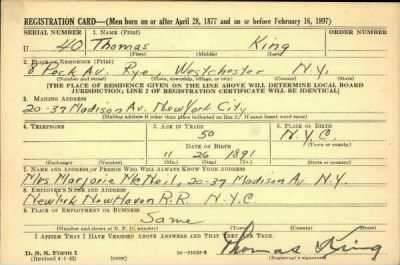 REGISTRATION CARD—(Men born on or after April 28, 1877 and on or before February 16, 1897)
SERIAL NUMBER 1. NAME (Print) ORDER NUMBER
U 40 Thomas King
(First) (Middle) (Last)
2. PLACE OF RESIDENCE (Print)
8 Peck Av. Rye, Westchester N.Y.
(Number and street) (Town, township, village, or city) (County) (State)
[THE PLACE OF RESIDENCE GIVEN ON THE LINE ABOVE WILL DETERMINE LOCAL BOARD
JURISDICTION; LINE 2 OF REGISTRATION CERTIFICATE WILL BE IDENTICAL]
3. MAILING ADDRESS
20-37 Madison Av. New York City
[Mailing address if other than place indicated on line 2. If same insert word same]
4. TELEPHONE 5. AGE IN YEARS 6. PLACE OF BIRTH
50 N.Y.C.
DATE OF BIRTH (Town or county)
11 26 1891
(Exchange) (Number) (Mo.) (Day) (Yr.) (State or country)
7. NAME AND ADDRESS OF PERSON WHO WILL ALWAYS KNOW YOUR ADDRESS
Mrs. Marjorie McNeil, 20-37 Madison Av. N.Y.
8. EMPLOYER'S NAME AND ADDRESS
New York New Haven R.R. N.Y.C.
9. PLACE OF EMPLOYMENT OR BUSINESS
Same
(Number and street or R. F. D. number) (Town) (County) (State)
I AFFIRM THAT I HAVE VERIFIED ABOVE ANSWERS AND THAT THEY ARE TRUE.
D. S. S. Form 1
(Revised 4-1-42) (over) Thomas King
(Registrant's signature)